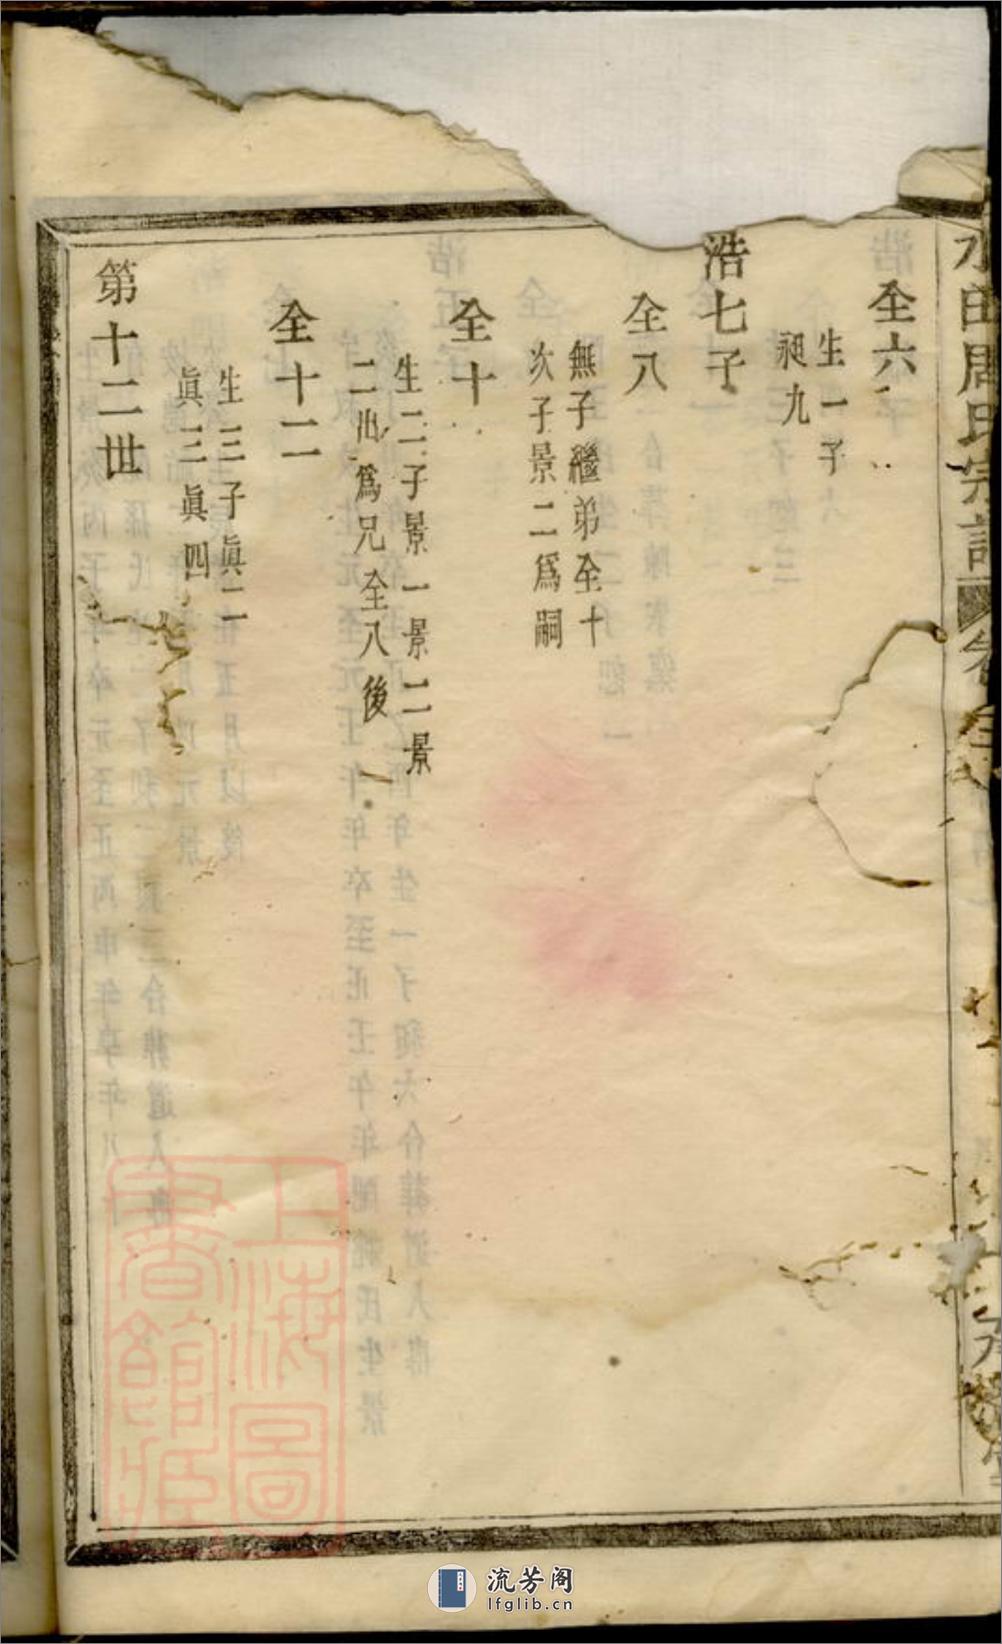 水田周氏宗譜
全六
生一子
昶九
浩七子
全八
無子繼弟全十
次子景二爲嗣
全十
生二子景一景二景
二出爲兄全八後
全十二
生三子眞二
眞三眞四
第十二世
上海圖
書館藏
流芳阁
lfglib.cn